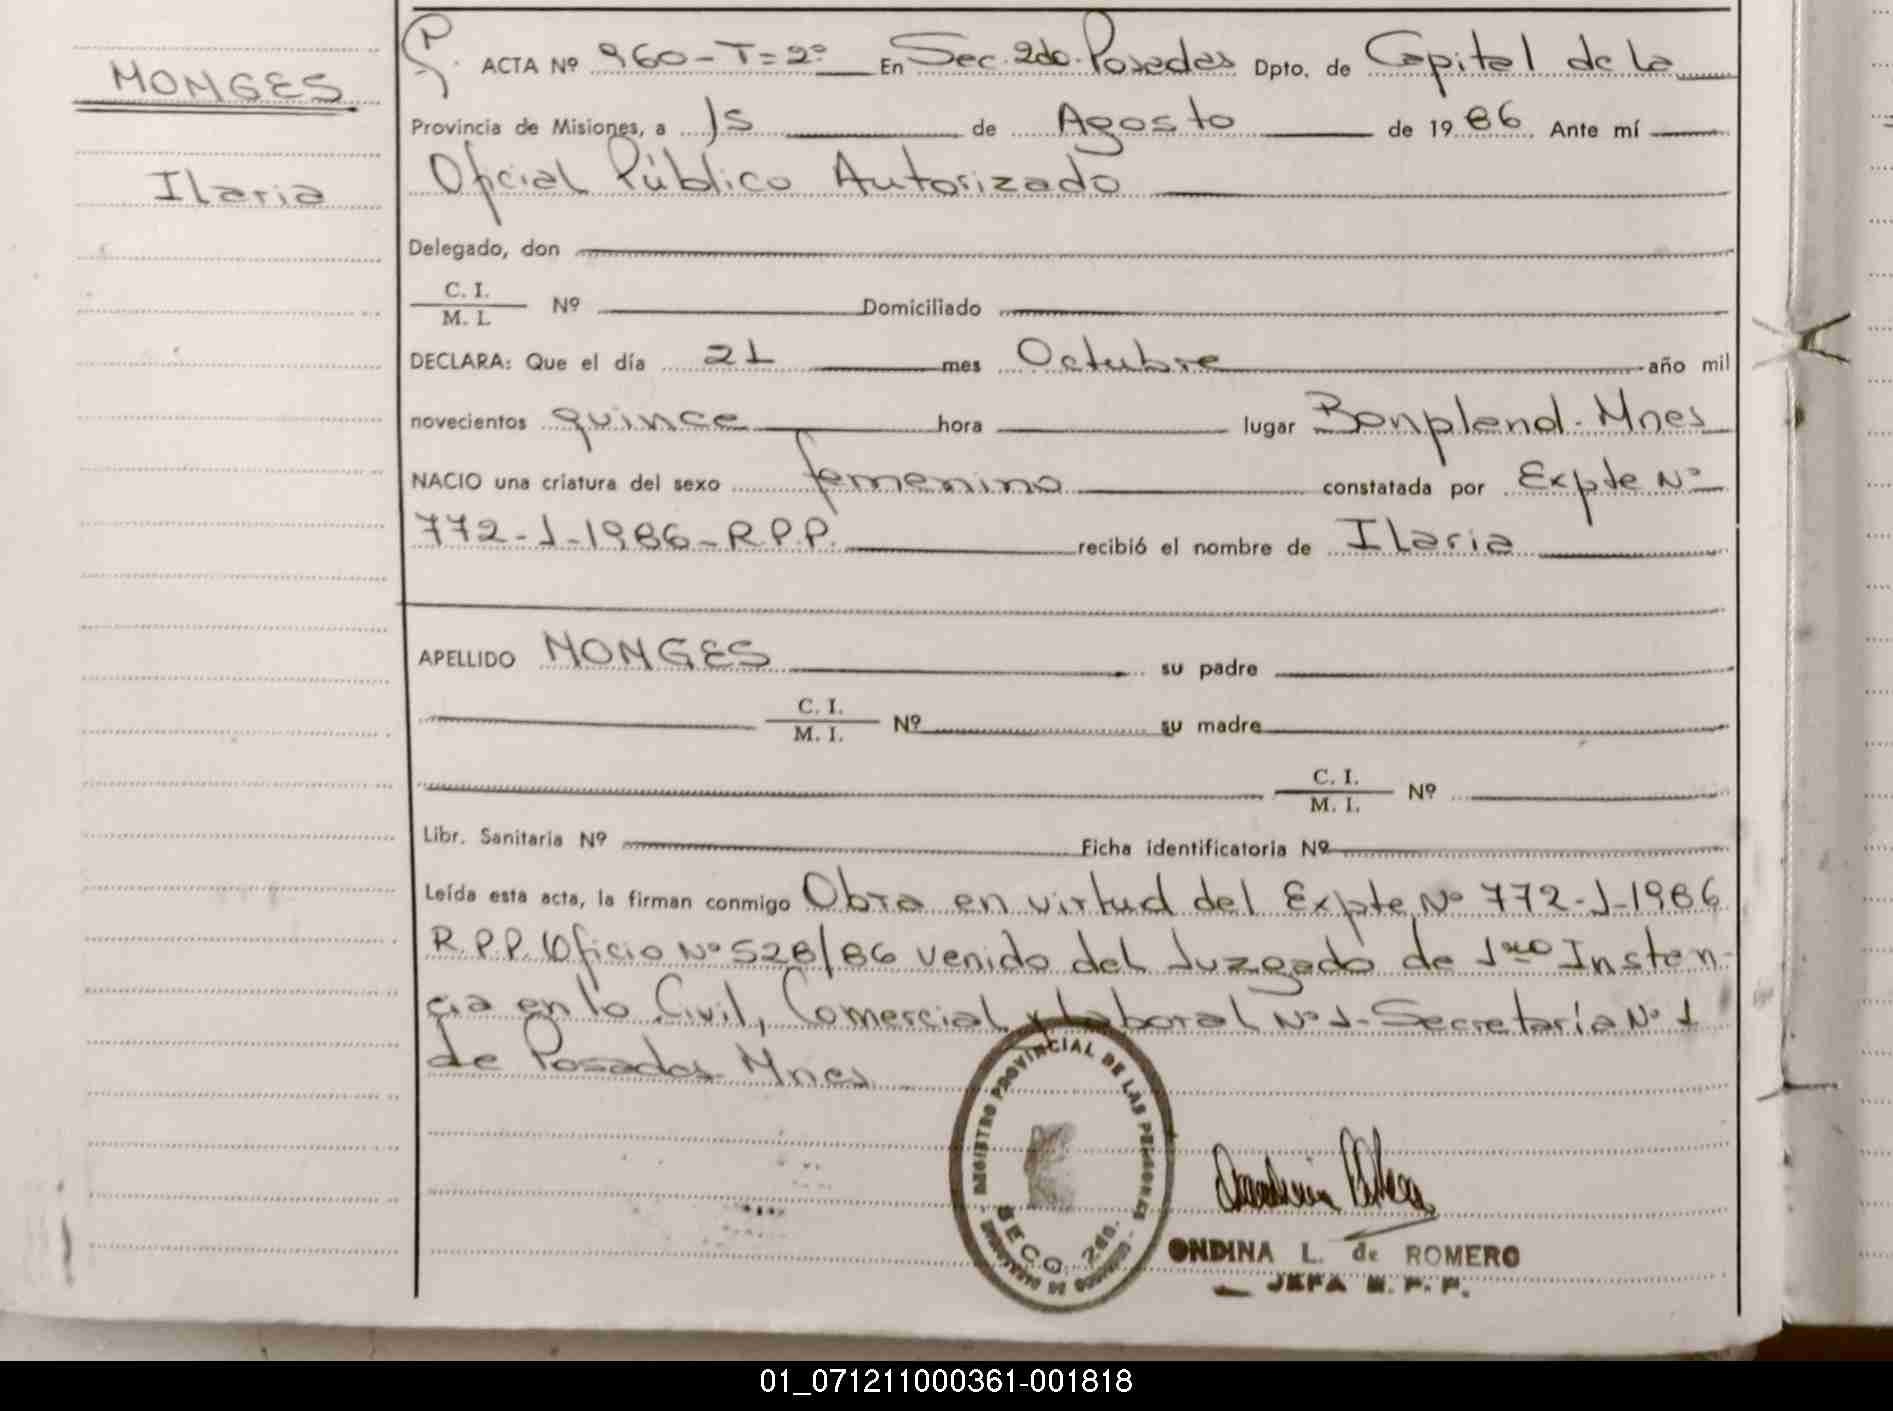 MONGES
Ilaria
ACTA Nº 960-T=2º En Sec. 2do. Posadas Dpto. de Capital de la
Provincia de Misiones, a 15 de Agosto de 1986 Ante mí
Oficial Público Autorizado
Delegado, don
C. I.
M. I. Nº Domiciliado
DECLARA: Que el día 21 mes Octubre año mil
novecientos quince hora lugar Bonpland-Mnes
NACIO una criatura del sexo femenino constatada por Expte Nº
772-J-1986-R.P.P. recibió el nombre de Ilaria
APELLIDO MONGES su padre
C. I.
M. I. Nº su madre
C. I.
M. I. Nº
Libr. Sanitaria Nº Ficha identificatoria Nº
Leída esta acta, la firman conmigo Obra en virtud del Expte Nº 772-J-1986
R.P.P. Oficio Nº 528/86 venido del Juzgado de 1ra Instan-
cia en lo Civil, Comercial y Laboral Nº 1-Secretaría Nº 1
de Posadas-Mnes
REGISTRO PROVINCIAL DE LAS PERSONAS
SECC. 2da.
ONDINA L. de ROMERO
JEFA R. P. P.
01_071211000361-001818